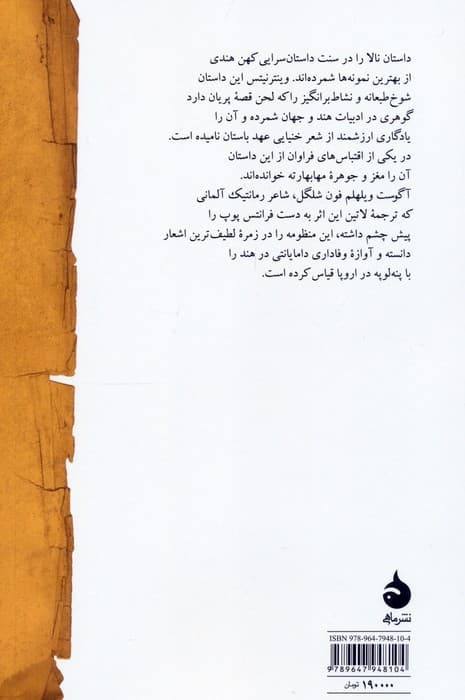 داستان نالا را در سنت داستان‌سرایی کهن هندی
از بهترین نمونه‌ها شمرده‌اند. وینترنیتس این داستان
شوخ‌طبعانه و نشاط‌برانگیز را که لحن قصهٔ پریان دارد
گوهری در ادبیات هند و جهان شمرده و آن را
یادگاری ارزشمند از شعر خنیایی عهد باستان نامیده است.
در یکی از اقتباس‌های فراوان از این داستان
آن را مغز و جوهرهٔ مهابهارته خوانده‌اند.
آگوست ویلهلم فون شلگل، شاعر رمانتیک آلمانی
که ترجمهٔ لاتین این اثر به دست فرانتس پوپ را
پیش چشم داشته، این منظومه را در زمرهٔ لطیف‌ترین اشعار
دانسته و آوازهٔ وفاداری دامایانتی در هند را
با پنه‌لوپه در اروپا قیاس کرده است.
نشرماهی
ISBN 978-964-7948-10-4
9 789647 948104
۱۹۰۰۰۰ تومان